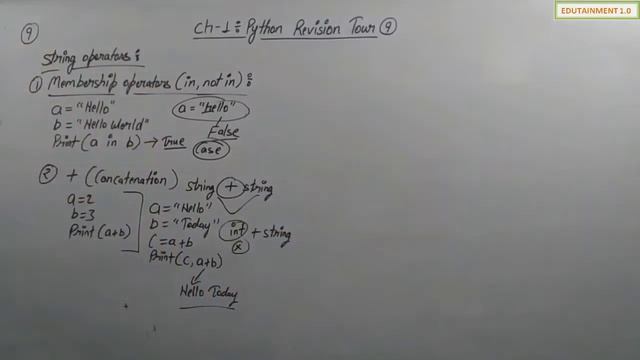 EDUTAINMENT 1.0
9
Ch-1: Python Revision Tour 9
String operators:
1 Membership operators (in, not in):
a = "Hello"
a = "hello"
b = "Hello World"
False
Print (a in b) → True
Case
2 + (Concatenation)
string + string
a=2
b=3
Print (a+b)
a = "Hello"
b = "Today"
int + string
x
C = a+b
Print (C, a+b)
Hello Today